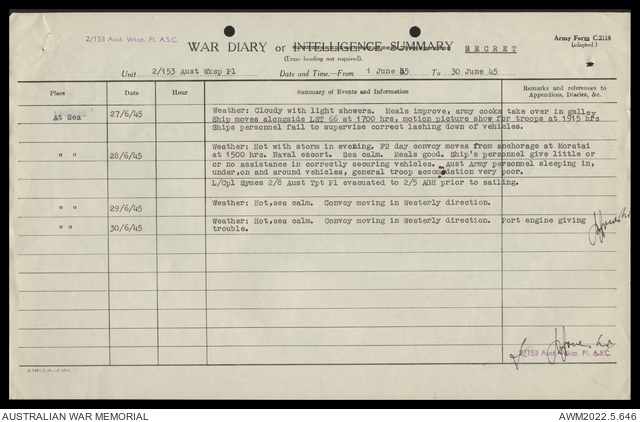 2/153 Aust. Wksp. Pl. A.S.C.
WAR DIARY or INTELLIGENCE SUMMARY SECRET
Army Form C.2118
(adapted.)
(Erase heading not required).
Unit 2/153 Aust Wksp Pl Date and Time.—From 1 June 45 To 30 June 45
Place Date Hour Summary of Events and Information Remarks and references to
Appendices, Diaries, &c.
At Sea 27/6/45 Weather: Cloudy with light showers. Meals improve, army cooks take over in galley
Ship moves alongside LST 66 at 1700 hrs, motion picture show for troops at 1915 hrs
Ships personnel fail to supervise correct lashing down of vehicles.
" " 28/6/45 Weather: Hot with storm in evening. P2 day convoy moves from anchorage at Moratai
at 1500 hrs. Naval escort. Sea calm. Meals good. Ship's personnel give little or
or no assistance in correctly securing vehicles. Aust Army personnel sleeping in,
under, on and around vehicles, general troop accomodation very poor.
L/Cpl Symes 2/8 Aust Tpt Pl evacuated to 2/5 AGH prior to sailing.
" " 29/6/45 Weather: Hot, sea calm. Convoy moving in Westerly direction.
" " 30/6/45 Weather: Hot, sea calm. Convoy moving in Westerly direction. Port engine giving
trouble.
2/153 Aust. Wksp. Pl. A.S.C.
AUSTRALIAN WAR MEMORIAL AWM2022.5.646